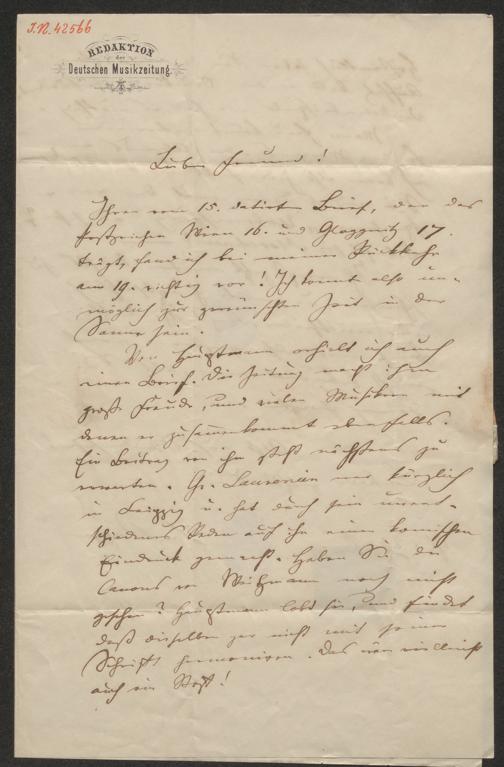 J.N. 42566
REDAKTION
der
Deutschen Musikzeitung.
Lieber Freund!
Ihren vom 15. datirten Brief, der das
Postzeichen Wien 16. und Gloggnitz 17.
trägt, fand ich bei meiner Rückkehr
am 19. richtig vor! Ich konnte also un-
möglich zur gewünschten Zeit in der
sein.
Von Hauptmann erhielt ich auch
einen Brief. Die Zeitung macht ihm
große Freude, und vielen Musikern mit
denen er zusammenkommt ebenfalls.
Ein Beitrag von ihm steht nächstens zu
erwarten. Gr. Laurencin war kürzlich
in Leipzig u. hat durch sein
Reden auch ihm einen komischen
Eindruck gemacht. Haben Sie die
Canons von Weitzmann noch nicht
gesehen? Hauptmann lobt sie, und findet
daß dieselben gar nicht mit seiner
Schrift harmoniren. Das wäre vielleicht
auch ein Stoff!